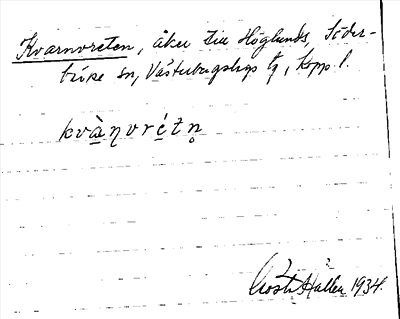 Kvarnvreten, åker till Höglunds, Söder-
bärke sn, Västerbergslags tg, Kopp. l.
kvàn̥vrétn̥
Gösta Hallén 1934.